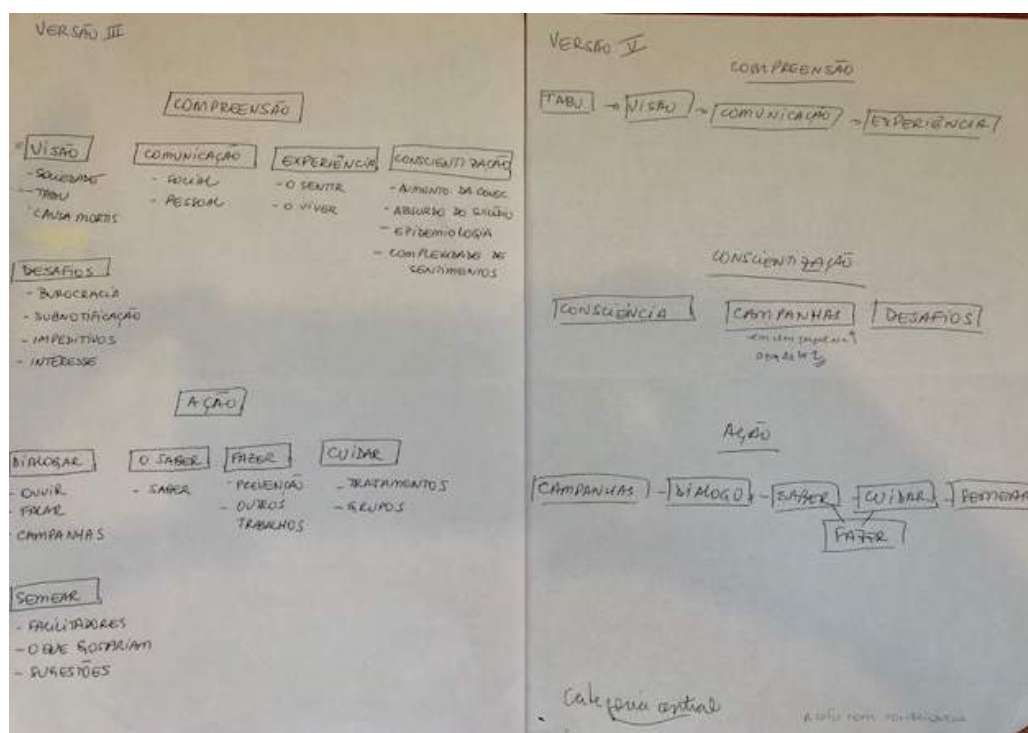 VERSÃO III
COMPREENSÃO
VISÃO
- SOCIEDADE
- TABU
- CAUSA MORTIS
COMUNICAÇÃO
- SOCIAL
- PESSOAL
EXPERIÊNCIA
- O SENTIR
- O VIVER
CONSCIENTIZAÇÃO
- AUMENTO DA CONSC.
- ABSURDO DO SUICÍDIO
- EPIDEMIOLOGIA
- COMPLEXIDADE DE
SENTIMENTOS
DESAFIOS
- BUROCRACIA
- SUBNOTIFICAÇÃO
- IMPEDITIVOS
- INTERESSE
AÇÃO
DIALOGAR
- OUVIR
- FALAR
- CAMPANHAS
O SABER
- SABER
FAZER
- PREVENÇÃO
- OUTROS
TRABALHOS
CUIDAR
- TRATAMENTOS
- GRUPOS
SEMEAR
- FACILITADORES
- O QUE GOSTARIAM
- SUGESTÕES
VERSÃO V
COMPREENSÃO
TABU → VISÃO → COMUNICAÇÃO → EXPERIÊNCIA
CONSCIENTIZAÇÃO
CONSCIÊNCIA CAMPANHAS DESAFIOS
AÇÃO
CAMPANHAS - DIÁLOGO - SABER - CUIDAR - SEMEAR
FAZER
Categoria central